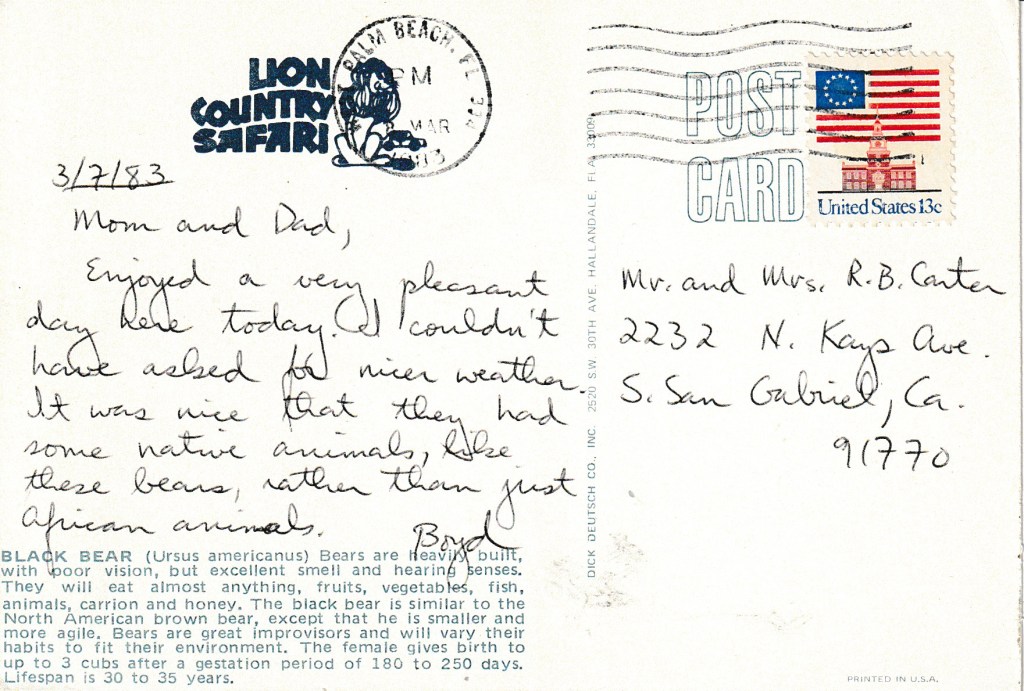 LION
COUNTRY
SAFARI
PALM BEACH, FL
PM
MAR
3/7/83
Mom and Dad,
Enjoyed a very pleasant
day here today. I couldn't
have asked for nicer weather.
It was nice that they had
some native animals, like
these bears, rather than just
African animals.
Boyd
BLACK BEAR (Ursus americanus) Bears are heavily built,
with poor vision, but excellent smell and hearing senses.
They will eat almost anything, fruits, vegetables, fish,
animals, carrion and honey. The black bear is similar to the
North American brown bear, except that he is smaller and
more agile. Bears are great improvisors and will vary their
habits to fit their environment. The female gives birth to
up to 3 cubs after a gestation period of 180 to 250 days.
Lifespan is 30 to 35 years.
DICK DEUTSCH CO., INC. 2520 S.W. 30TH AVE. HALLANDALE, FLA. 33009
POST
CARD
United States 13c
Mr. and Mrs. R.B. Carter
2232 N. Kays Ave.
S. San Gabriel, Ca.
91770
PRINTED IN U.S.A.